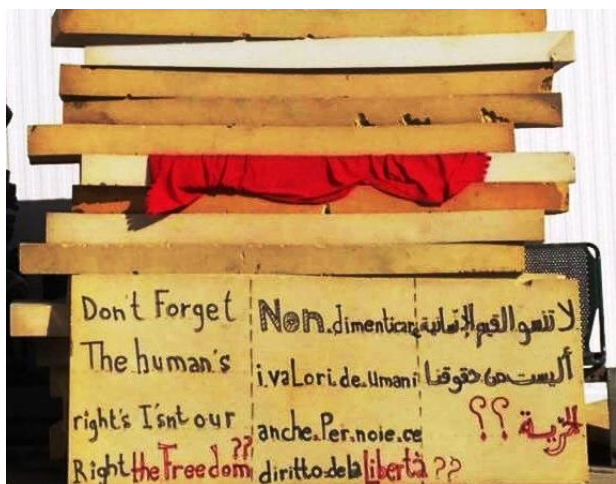 Don't Forget
The human's
right's I'snt our
Right the Freedom??
Non.dimenticare
i.vaLori.de.umani
anche.Per.noie.ce
diritto.dela libertà??
لا تنسو القيم الإنسانية
أليست من حقوقنا
الحرية ؟؟